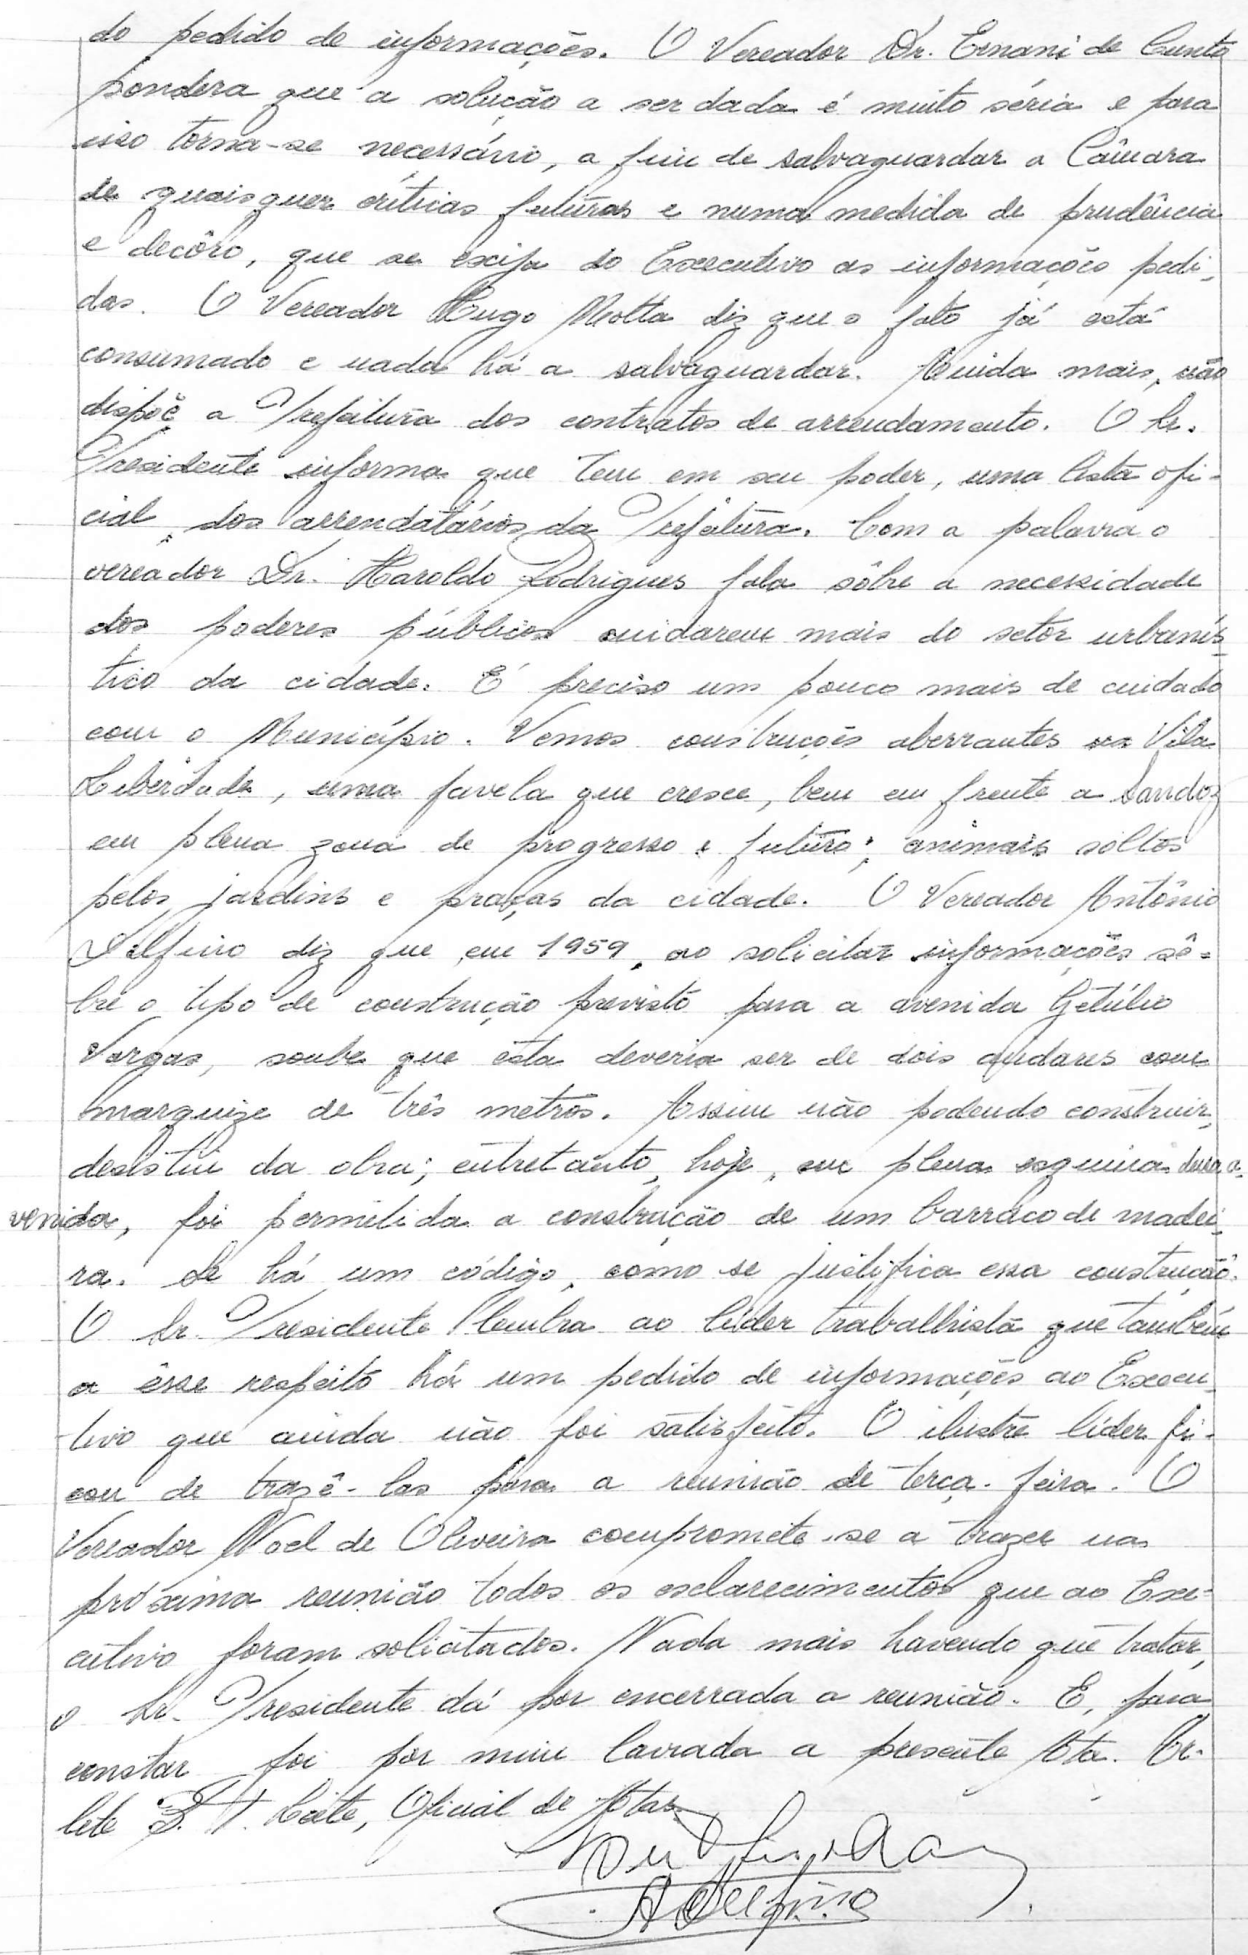 do pedido de informações. O Vereador Dr. Ernani do Cunto
pondera que a solução a ser dada é muito séria e para
isso torna-se necessário, a fim de salvaguardar a Câmara
de quaisquer críticas futuras e numa medida de prudência
e decôro, que se exija do Executivo as informações pedi-
das. O Vereador Hugo Motta diz que o fato já está
consumado e nada há a salvaguardar. Ainda mais, não
dispõe a Prefeitura dos contratos de arrendamento. O Sr.
Presidente informa que tem em seu poder, uma lista ofi-
cial, dos arrendatários da Prefeitura. Com a palavra o
vereador Dr. Haroldo Rodrigues fala sôbre a necessidade
dos poderes públicos cuidarem mais do setor urbanís-
tico da cidade. É preciso um pouco mais de cuidado
com o Município. Vemos construções aberrantes na Vila
Liberdade, uma favela que cresce, bem em frente a Sandoz
em plena zona de progresso e futuro; animais soltos
pelos jardins e praças da cidade. O Vereador Antônio
Delfino diz que em 1959, ao solicitar informações sô-
bre o tipo de construção previsto para a avenida Getúlio
Vargas, soube que esta deveria ser de dois andares com
marquize de três metros. Assim não podendo construir,
desistiu da obra; entretanto, hoje, em plena esquina dessa a-
venida, foi permitida a construção de um barraco de madei-
ra. Se há um código, como se justifica essa construção.
O Sr. Presidente lembra ao líder trabalhista que também
a êsse respeito há um pedido de informações ao Execu-
tivo que ainda não foi satisfeito. O ilustre líder fi-
cou de trazê-las para a reunião de terça-feira. O
Vereador Noel de Oliveira compromete-se a trazer na
próxima reunião todos os esclarecimentos que ao Exe-
cutivo foram solicitados. Nada mais havendo que tratar,
o Sr. Presidente dá por encerrada a reunião. E, para
constar foi por mim lavrada a presente Ata. Ar-
lete B. T. Leite, Oficial de Atas
ADelfino